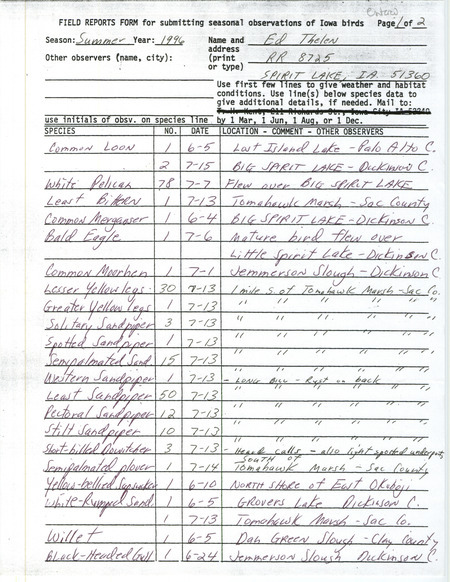 Entered
FIELD REPORTS FORM for submitting seasonal observations of Iowa birds Page 1 of 2
Season: Summer Year: 1996 Name and Ed Thelen
address RR 8725
Other observers (name, city): (print
or type) SPIRIT LAKE, IA 51360
Use first few lines to give weather and habitat
conditions. Use line(s) below species data to
give additional details, if needed. Mail to:
use initials of obsv. on species line by 1 Mar, 1 Jun, 1 Aug, or 1 Dec.
SPECIES NO. DATE LOCATION - COMMENT - OTHER OBSERVERS
Common Loon 1 6-5 Lost Island Lake - Palo Alto C.
2 7-15 BIG SPIRIT LAKE - Dickinson C.
White Pelican 78 7-7 Flew over BIG SPIRIT LAKE
Least Bittern 1 7-13 Tomahawk Marsh - Sac County
Common Merganser 1 6-4 BIG SPIRIT LAKE - Dickinson C.
Bald Eagle 1 7-6 Mature bird flew over
Little Spirit Lake - Dickinson C.
Common Moorhen 1 7-1 Jemmerson Slough - Dickinson C
Lesser Yellowlegs 30 7-13 1 mile S. of Tomahawk Marsh - Sac Co.
Greater Yellowlegs 1 7-13 " " " " "
Solitary Sandpiper 3 7-13 " " " " "
Spotted Sandpiper 1 7-13 " " " " "
Semipalmated Sand. 15 7-13 " " " " "
Western Sandpiper 1 7-13 - LONG Bill - Rust on back
Least Sandpiper 50 7-13 " " " " "
Pectoral Sandpiper 12 7-13 " " " " "
Stilt Sandpiper 10 7-13 " " " " "
Short-billed Dowitcher 3 7-13 - Heard calls - also light spotted underpts
Semipalmated plover 1 7-14 SOUTH OF Tomahawk Marsh - Sac County
Yellow-bellied Sapsucker 1 6-10 NORTH Shore of East Okoboji
White-Rumped Sand. 1 6-5 Grovers Lake Dickinson C.
1 7-13 Tomahawk Marsh - Sac Co.
Willet 1 6-5 Dan GREEN Slough - Clay County
Black-Headed Gull 1 6-24 Jemmerson Slough Dickinson C.